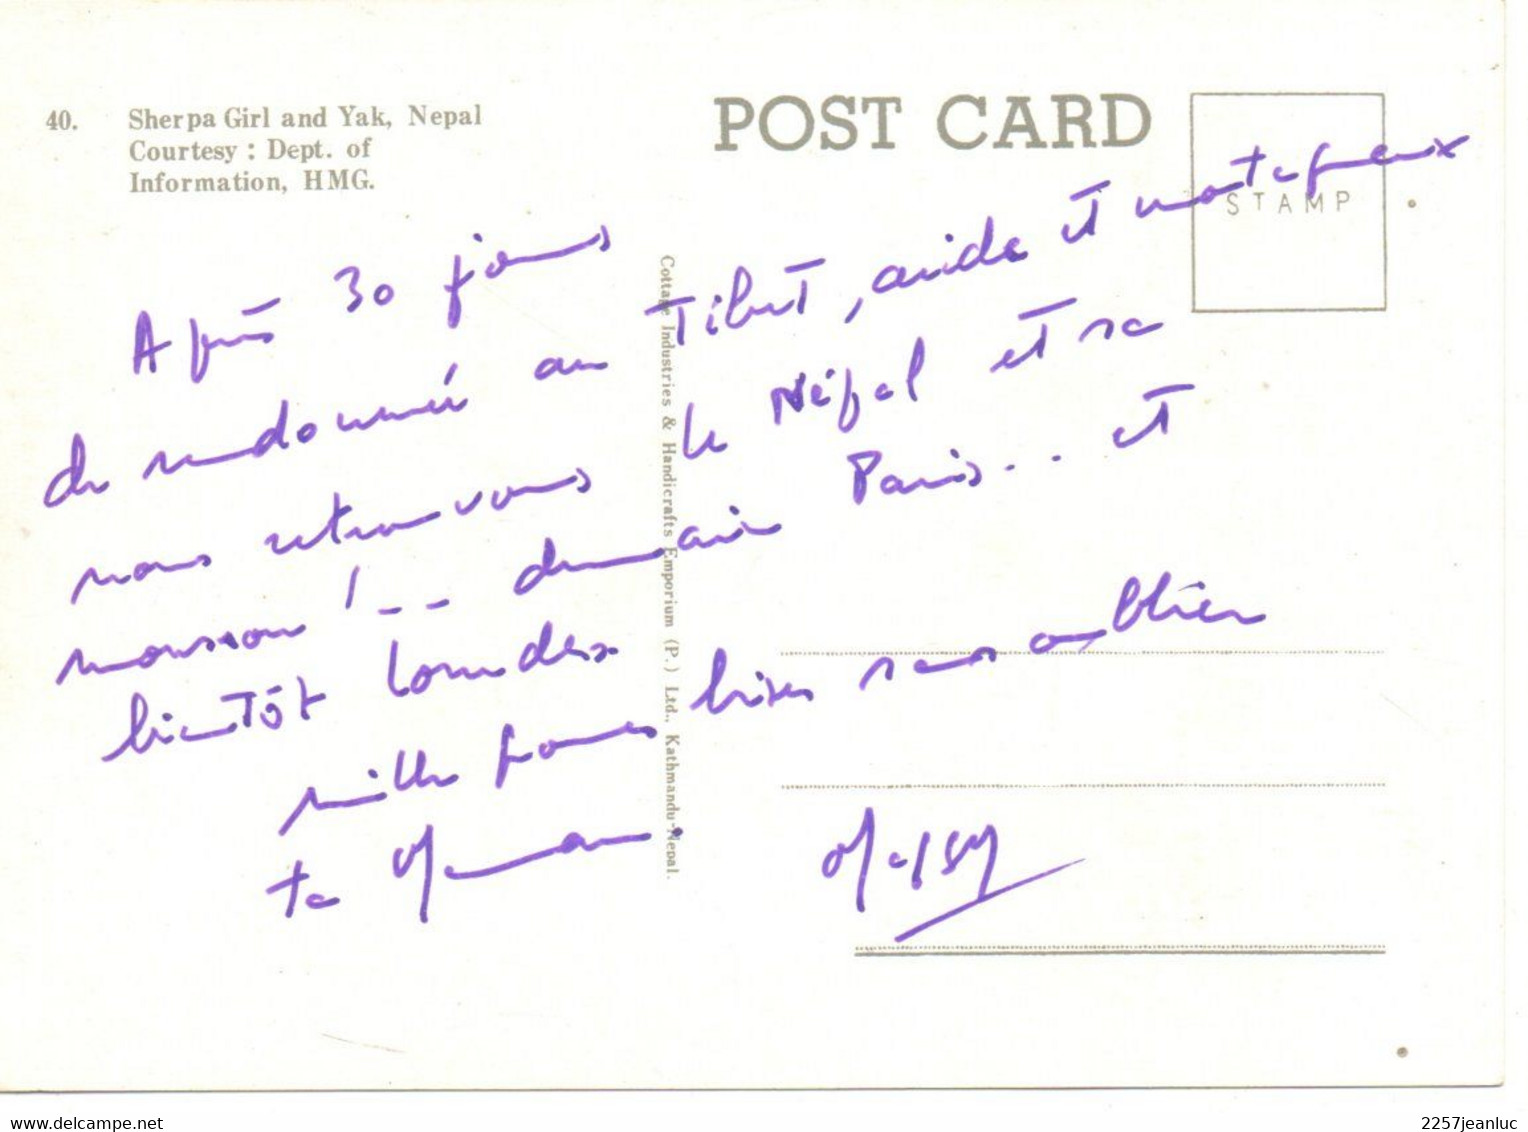 40. Sherpa Girl and Yak, Nepal
Courtesy : Dept. of
Information, HMG.
POST CARD
STAMP
Après 30 jours
de randonnée au Tibet, aride et
nous retrouvons le Népal et sa
mousson ! -- demain Paris... et
bientôt Lourdes
mille grosses bises sans oublier
ta
Cottage Industries & Handicrafts Emporium (P.) Ltd., Kathmandu-Nepal.
2257jeanluc